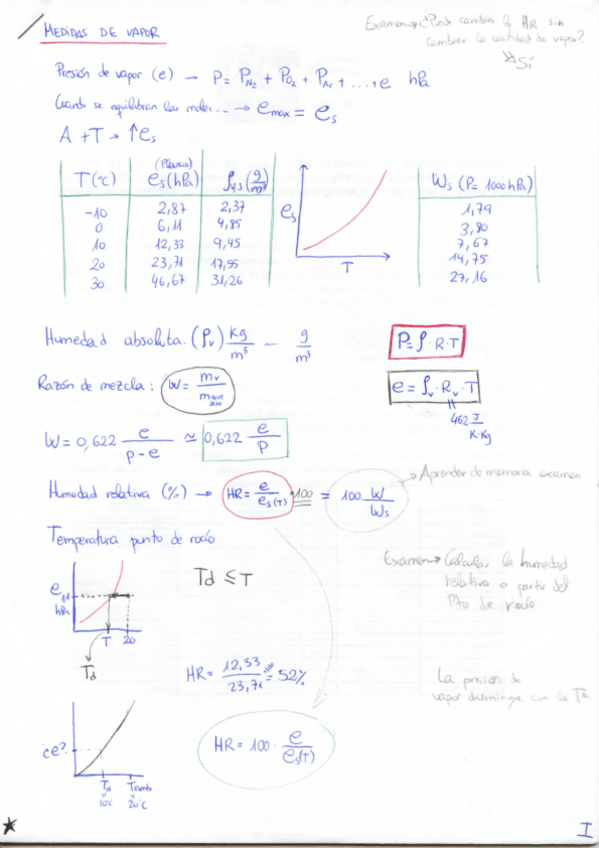 MEDIDAS DE VAPOR
Examen → ¿Puede cambiar la HR sin
cambiar la cantidad de vapor?
Sí
Presión de vapor (e) → P = P_N2 + P_O2 + P_Ar + ... + e hPa
Cuando se equilibran las molec... → e_max = e_s
A +T → ↑e_s
T (°C) e_s (hPa) ρ_v,s (g/m³)
-10 2,87 2,37
0 6,11 4,85
10 12,33 9,45
20 23,71 17,55
30 46,67 31,26
e_s
T
W_s (P = 1000 hPa)
1,79
3,80
7,67
14,75
27,16
Humedad absoluta. (ρ_v) kg/m³ — g/m³
P = ρ · R · T
Razón de mezcla: W = m_v / m
e = ρ_v · R_v · T
462 J / K·Kg
W = 0,622 e / (p - e) ≃ 0,622 e / P
Humedad relativa (%) → HR = e / e_s(T) · 100 = 100 W / W_s
→ Aprender de memoria examen
Temperatura punto de rocío
e 11 hPa
T 20
T_d
T_d ≤ T
Examen → Calcular la humedad
relativa a partir del
Pto de rocío
HR = 12,33 / 23,71 = 52%
La presión de
vapor disminuye con la Tª
¿e?
T_d 10°C
20°C
HR = 100 · e / e_s(T)
I